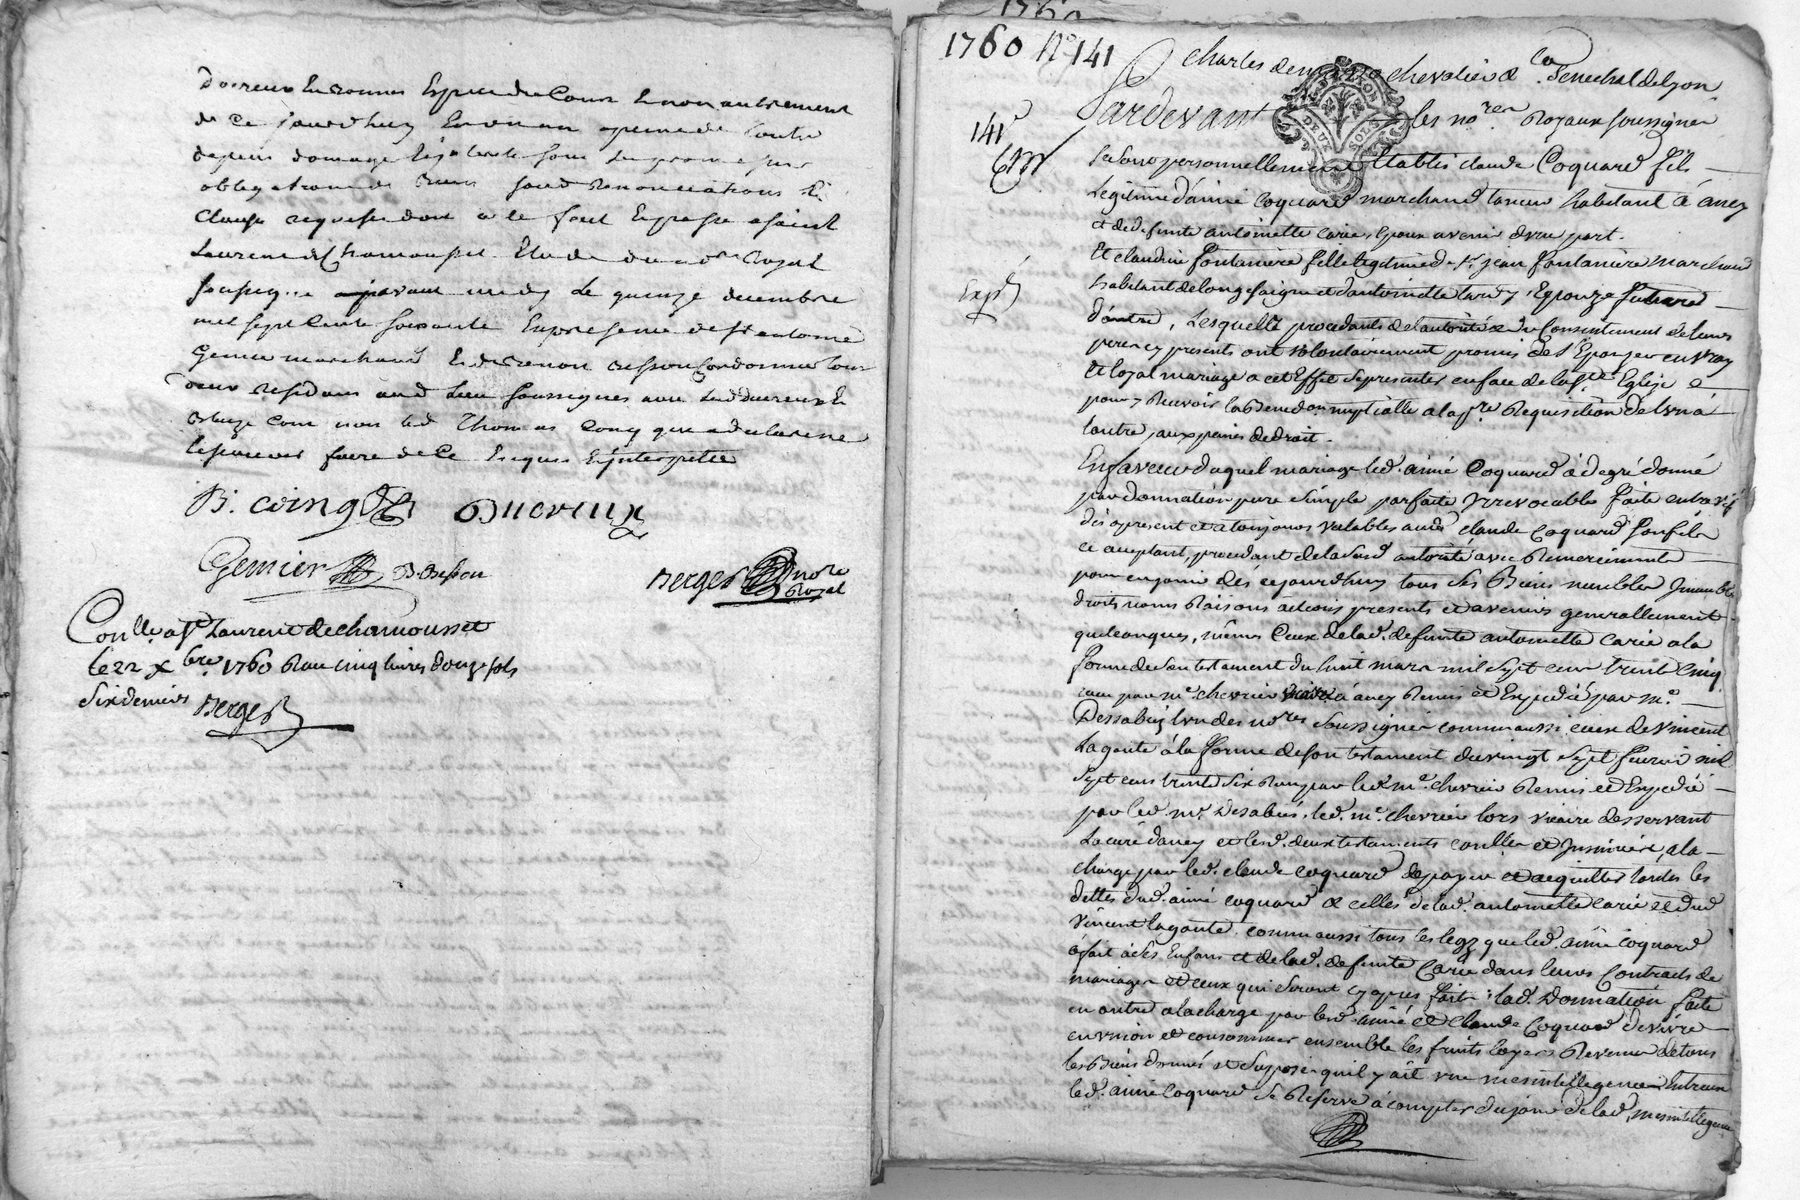 de ce jourdhuy
depens domage
obligations de renonciations &
Clause requise dont a le fait Expresse a saint
Laurent de Chamousset Etude du no.re Royal
soussigne apavant midy le quinze decembre
mil sept Cents soixante En presence de s.r antoine
Genier marchand
deux residans aud lieu soussignes avec led ducreux &
non led Thomas Coing qui a declare ne
le scavoir faire de ce Enquis & interpelle
B. coing
Ducreux
Genier
B Besson
Berger no.re Royal
Con.lle a s.t Laurent de chamousset
le 22 x.bre 1760 Reçu cinq livres douze sols
Six deniers Berger
1760
1760 N.o 141
Charles de chevalier & Senechal de Lyon
141
Pardevant les no.res Royaux soussignés
DEUX SOLS
Exp.é
Sont personnellement Etablis claude Coquard fils
Legitime d'aimé Coquard marchand taneur habitant à ancy
et de defunte antoinette carie, Epoux avenir d'vne part.
Et claudine fontaniere fille legitime de s.r jean fontaniere marchand
habitant de longesaigne et d'antoinette tardy, Epouze future
d'autre, Lesquelles procedants de l'autorité & du Consentement de leurs
peres cy presents ont volontairement promis de s'Epouzer en vray
& loyal mariage a cet Effet se presenter en face de la s.te Eglise &
pour y Recevoir la Bened.on nuptialle a la p.re Requisition de l'vn à
lautre, aux peines de droit.
En faveur duquel mariage led. aimé Coquard à de gré donné
par donnation pure simple parfaite yrrevocable faite entre vifs
dès apresent et a toujours valables aud. claude Coquard son fils
ce acceptant, procedant de lad. autorité avec Remerciment
pour en jouir dès cejourdhuy tous ses Biens meubles Immeubles
droits noms Raisons actions presents et avenir generallement
quelconques, même Ceux de lad. defunte antoinette Carie a la
forme de son testament du huit mars mil sept cent trente Cinq
recu par m.e chevrier vicaire à ancy Remis et Expedié par m.e
Dessabiy l'vn des no.res soussignés comm'aussi ceux de vincent
Lagoute à la forme de son testament du vingt sept fevrier mil
sept cent trente six Reçu par led. m.e chevrier Remis et Expedié
par led. m.e led. m.e chevrier lors vicaire desservant
La cure d'ancy et lesd. deux testaments con.llés et Jnsinués, a la
charge par led. claude Coquard de payer et acquitter toutes les
dettes dud. aimé Coquard & celles de lad. antoinette Carie et dud.
vincent lagoute, comm'aussi tous les legs que led. aimé Coquard
à fait à ses Enfans et de lad. defunte Carie dans leurs Contracts de
mariages et ceux qui seront cy apres faits: lad. Donnation faite
en outre a la charge par lesd. aimé et claude Coquard de vivre
en vnion et consommer ensemble les fruits loyers Revenus de tous
les Biens donnés et supposé qu'il y ait vne mesintelligence Entr'eux
led. aimé Coquard se Reserve à compter du jour de lad. mesintelligence